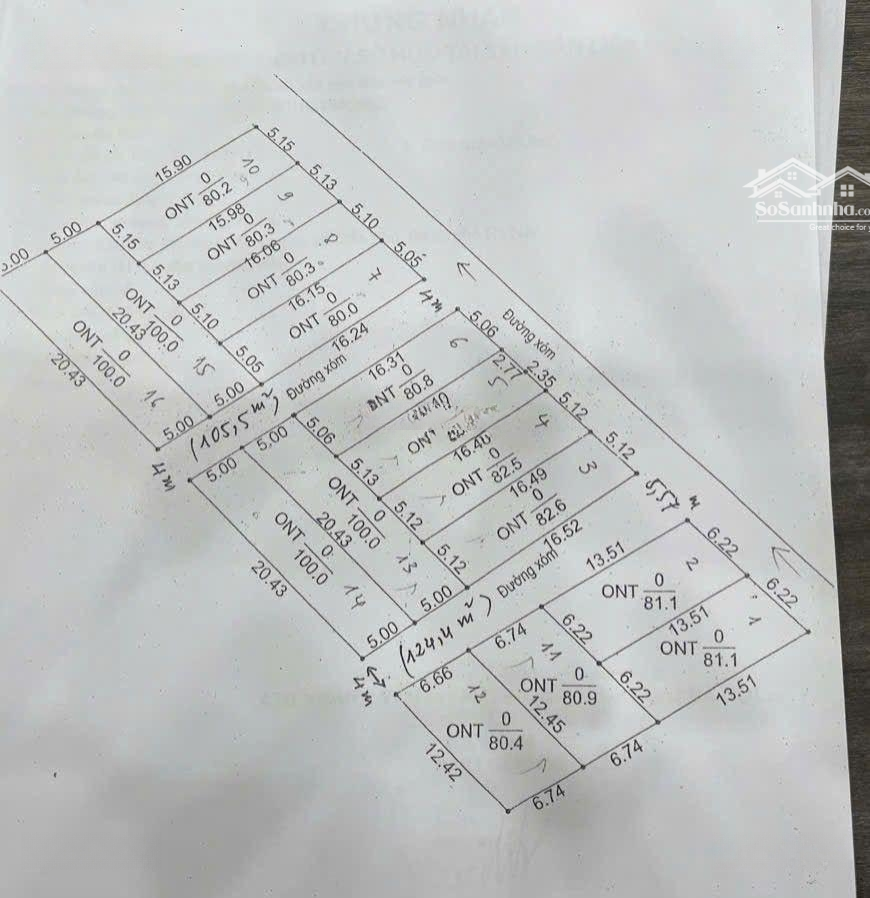 SoSanhnha.co
Great choice for y
15.90
5.15
10
ONT 0/80.2
5.13
9
15.98
ONT 0/80.3
5.10
8
16.06
ONT 0/80.3
5.05
7
16.15
ONT 0/80.0
16.24
5.00
5.00
5.15
5.13
5.10
5.05
ONT 0/100.0
15
20.43
ONT 0/100.0
16
20.43
5.00
5.00
4m
(105,5m²)
Đường xóm
4m
Đường xóm
5.06
6
16.31
ONT 0/80.8
2.77
2.35
5
16.46
5.12
4
ONT 0/82.5
16.49
5.12
3
ONT 0/82.6
16.52
5.00
5.00
5.06
5.13
5.12
5.12
ONT 0/100.0
13
20.43
ONT 0/100.0
14
20.43
5.00
5.00
4m
(124,4m²)
Đường xóm
5,57 m
13.51
6.22
2
ONT 0/81.1
13.51
6.22
1
ONT 0/81.1
13.51
6.66
6.74
6.22
6.22
11
ONT 0/80.9
12
12.45
ONT 0/80.4
12.42
6.74
6.74